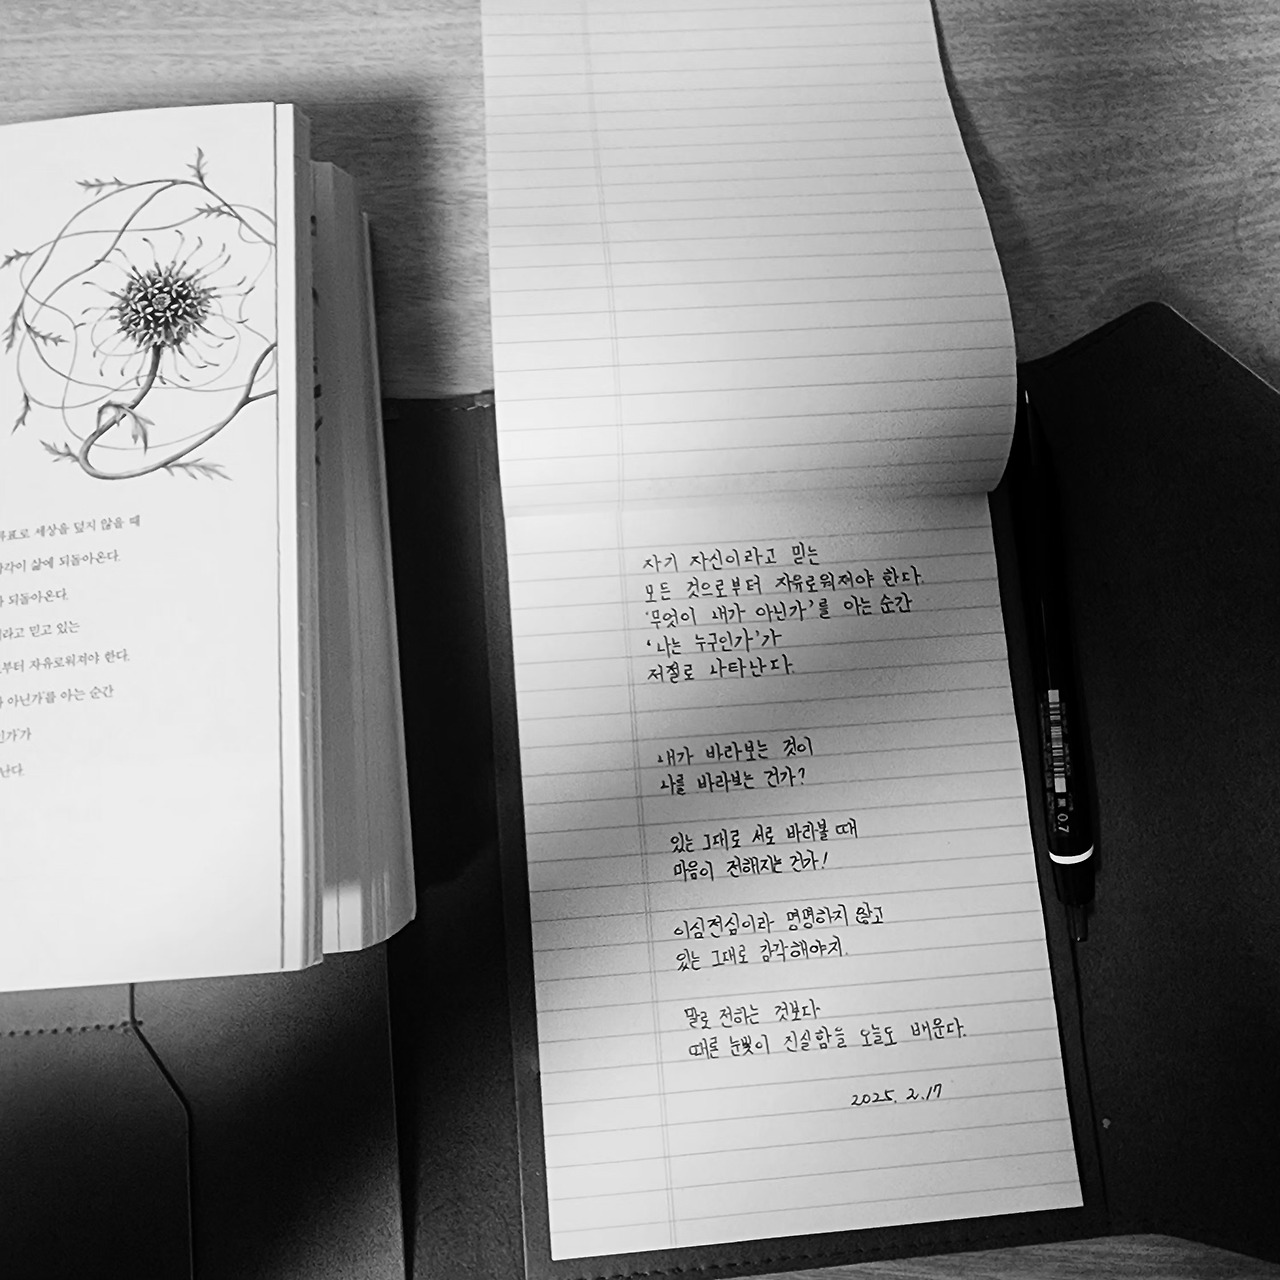 로 세상을 덮지 않을 때
삶에 되돌아온다.
되돌아온다.
라고 믿고 있는
부터 자유로워져야 한다.
아닌가'를 아는 순간
인가'가
난다.
자기 자신이라고 믿는
모든 것으로부터 자유로워져야 한다.
'무엇이 내가 아닌가'를 아는 순간
'나는 누구인가'가
저절로 나타난다.
내가 바라보는 것이
나를 바라보는 건가?
있는 그대로 서로 바라볼 때
마음이 전해지는 건가!
이심전심이라 명명하지 않고
있는 그대로 감각해야지.
말로 전하는 것보다
때론 눈빛이 진실함을 오늘도 배운다.
2025. 2. 17
黑 0.7